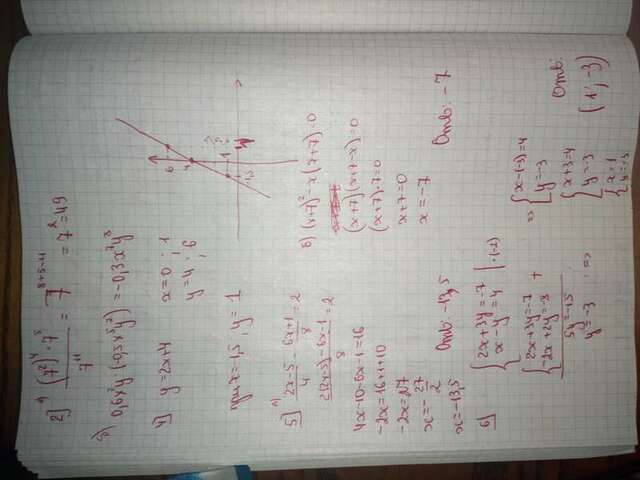 2] а) (7²)⁴ · 7⁵ / 7¹¹ = 7⁸⁺⁵⁻¹¹ = 7² = 49
б) 0,6x²y · (-0,5x⁵y²) = -0,3x⁷y³
4] y = 2x+4 x=0 ; 1
y=4 ; 6
при x=-1,5, y = 1
6
4
1
-1,5
1
5] а) 2x-5/4 - 6x+1/8 = 2
2(2x-5)-6x-1/8 = 2
4x-10-6x-1=16
-2x=16+1+10
-2x=27
x=-27/2
x=-13,5 Отв: -13,5
б) (x+7)² - x(x+7)=0
(x+7)(x+7-x)=0
(x+7)·7=0
x+7=0
x = -7
Отв: -7
6] { 2x+3y=-7
x-y=4 | ·(-2)
{ 2x+3y=-7
-2x+2y=-8 +
5y=-15
y=-3 =>
=> { x-(-3)=4
y=-3
{ x+3=4
y=-3
{ x=1
y=-3
Отв:
(1; -3)